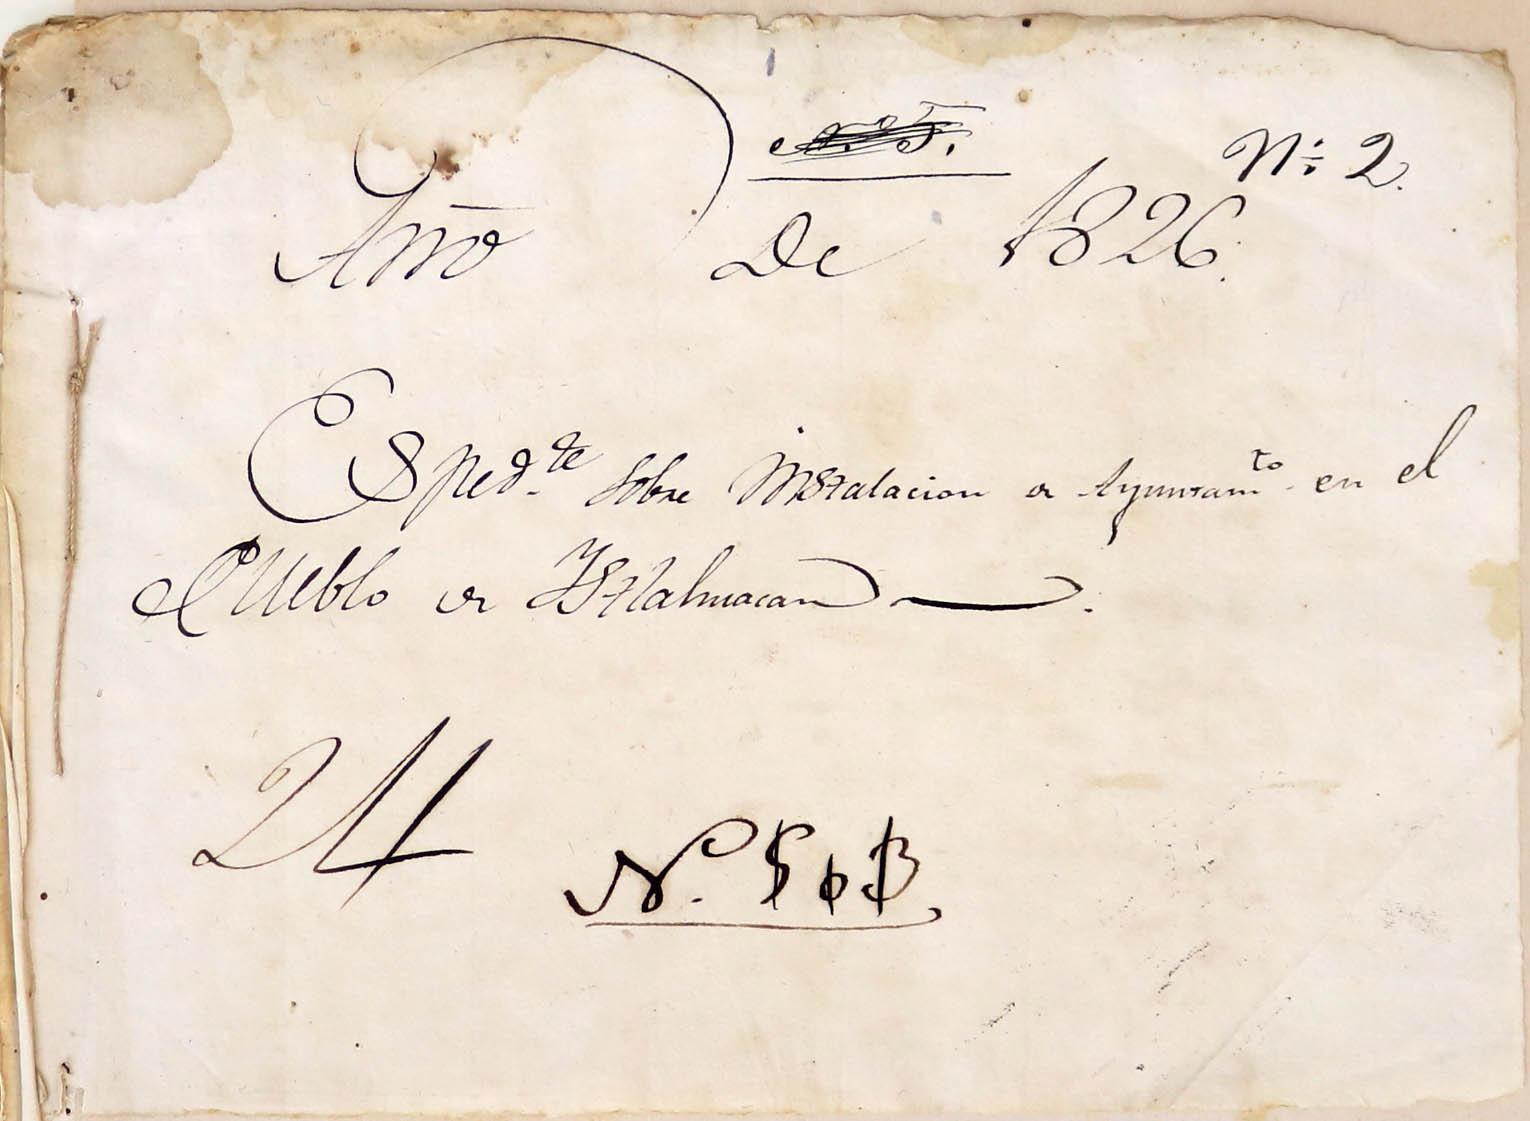 N.º 2.
Año De 1826.
Esped.te sobre Instalacion de Ayuntam.to en el
Pueblo de Istlahuacan.
24
N.